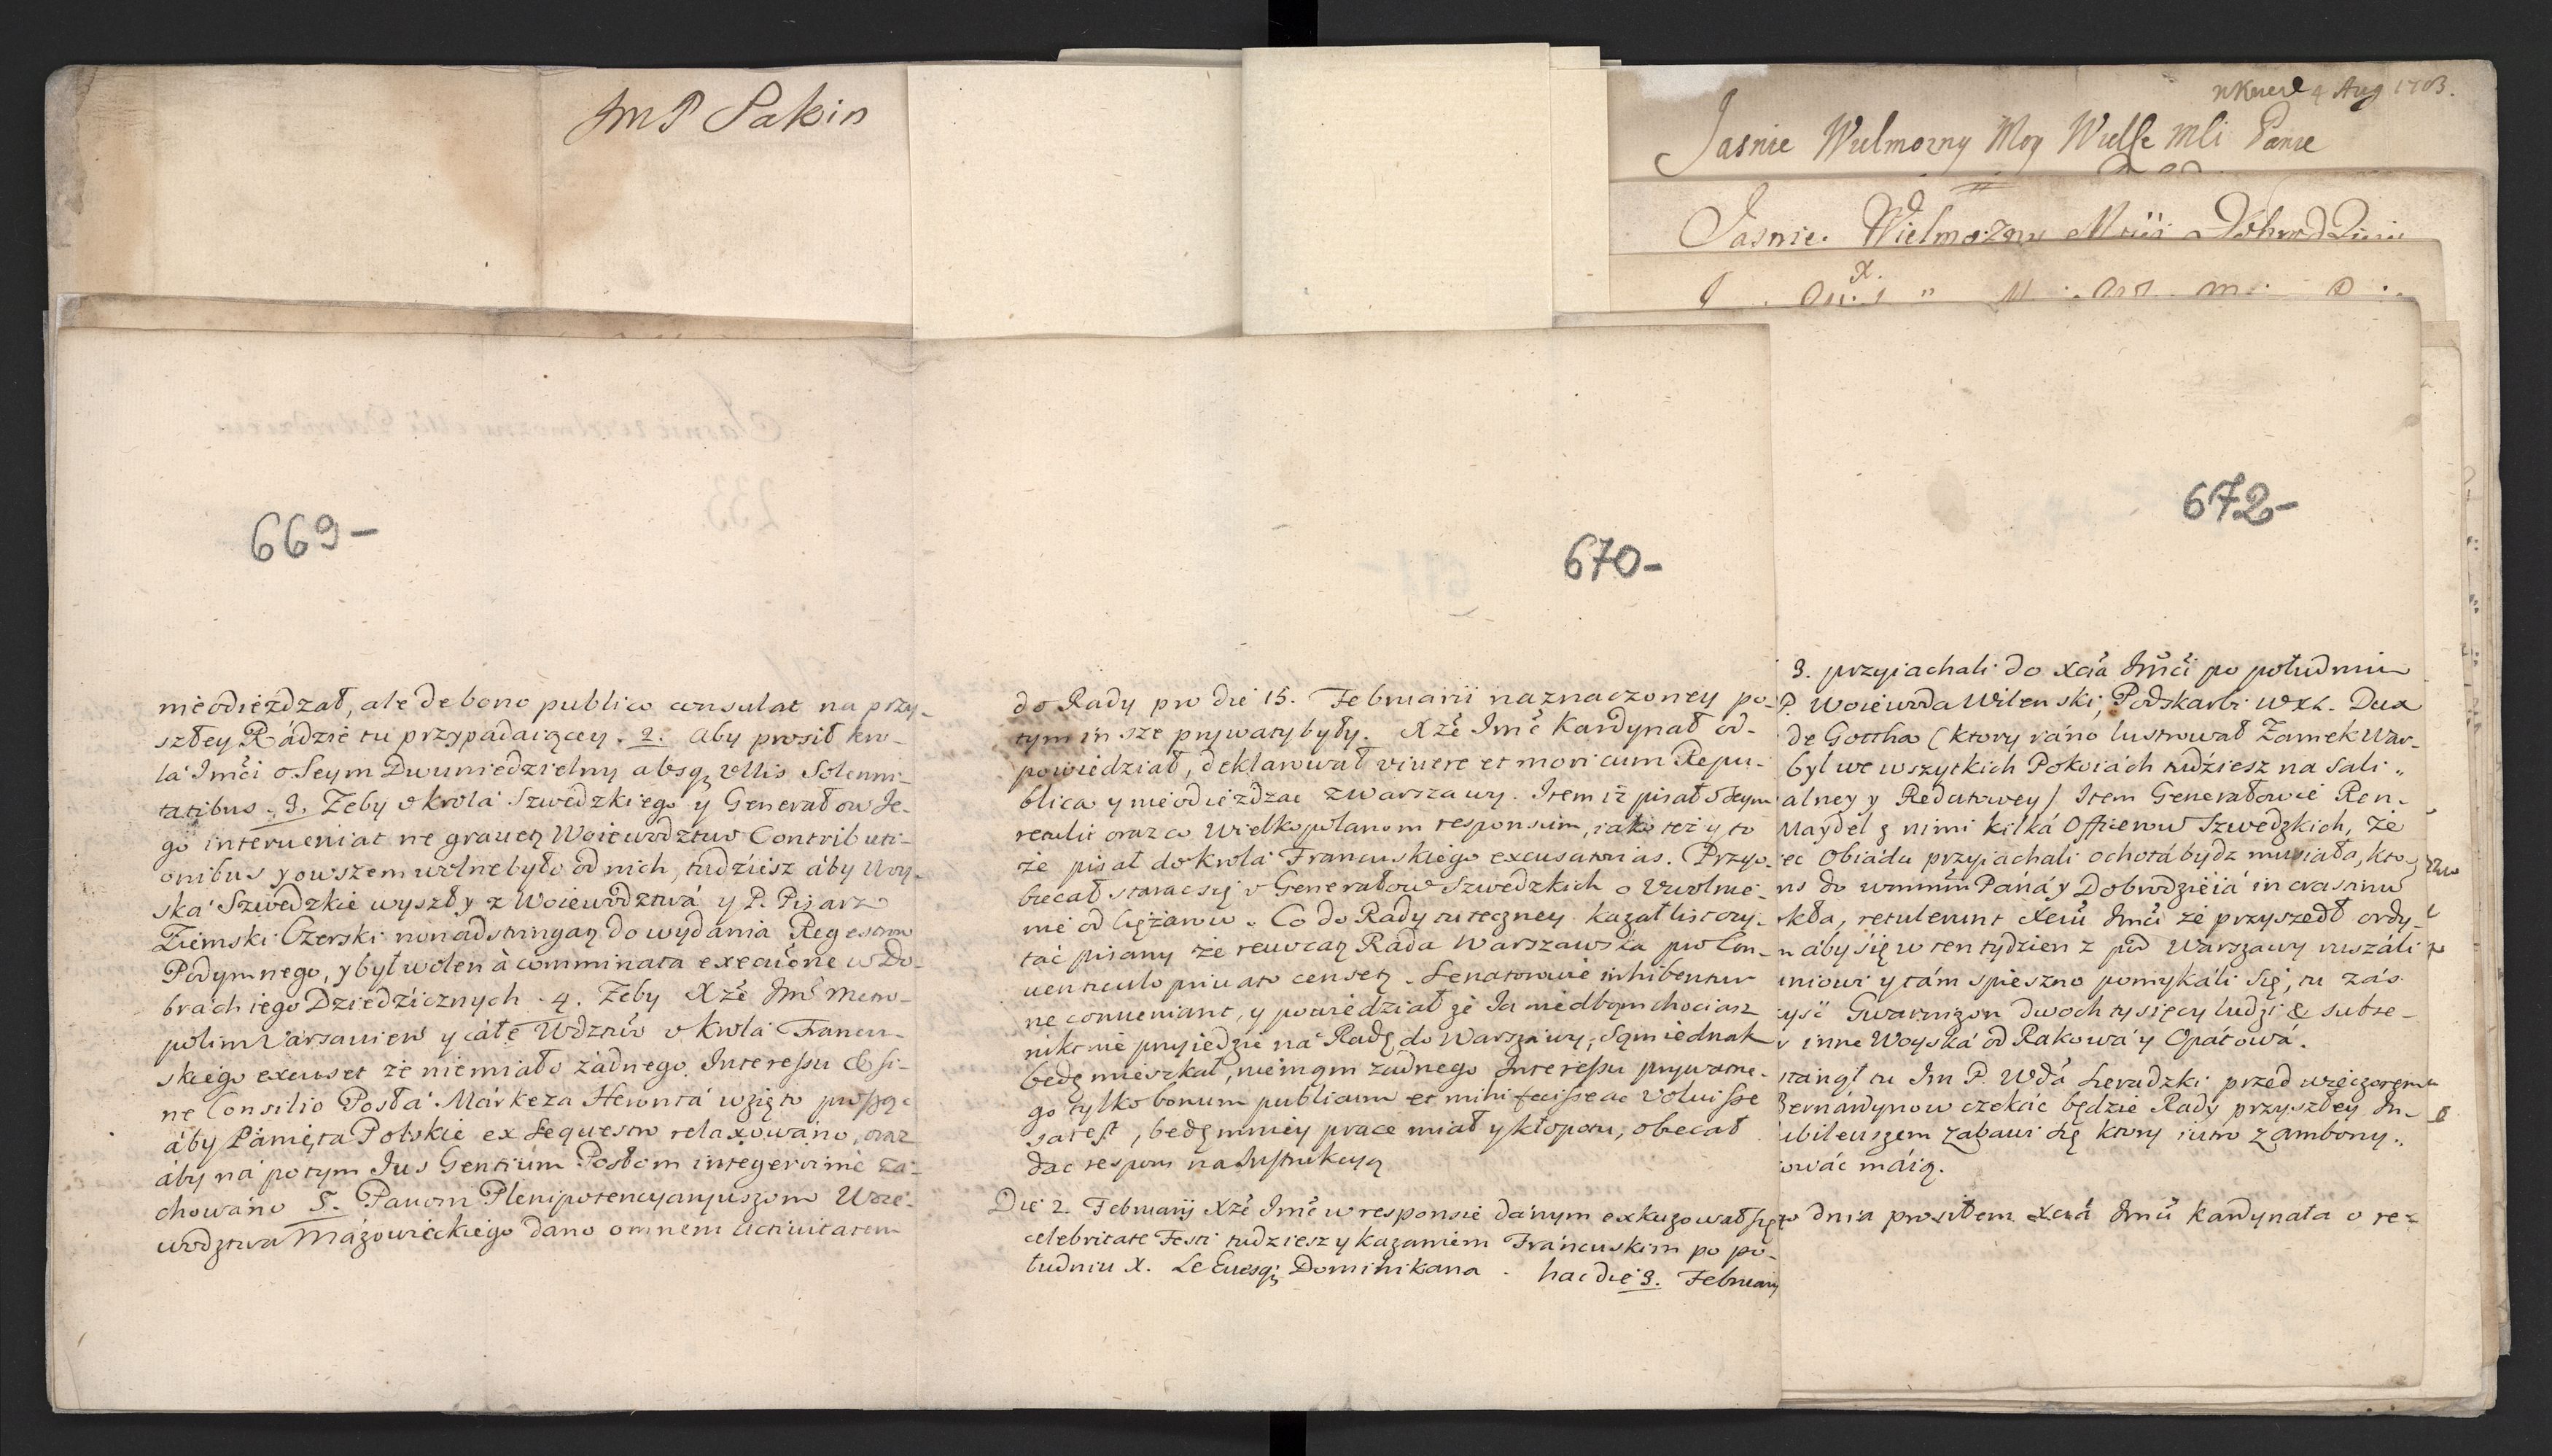 Im P Sakin
4 Aug 1703.
Jasnie Wielmozny Moy Mli Panie
Jasnie Wielmozny
669-
nieodieżdzał, ale de bono publico consulat na przy-
szłey Rádzie tu przypádaiącey. 2. aby prosił kro-
la Imći o Seym Dwuniedzielny absq; vllis Solenni-
tatibus. 3. Zeby v krola Szwedzkiego y Generałow Je-
go interueniat ne grauetą Woiewodztwo Contributi-
onibus y owszem wolne było od nich, tudziesz áby Woy-
ská Szwedzkie wyszły z Woiewodztwá y P. Pisarz
Ziemski Czerski non adstringaą do wydania Regestrow
Podymnego, y był wolen à comminata execuóne w Do-
brách iego Dziedzicznych. 4. Zeby Xżę Imć Metro-
polim Varsauien y całe Wdztwo v krola Francu-
skiego excuset że niemiało żadnego Interessu & si-
ne Consilio Posłá Márkeza Herontá wzięto
áby Pámięta Polskie ex Sequestro relaxowáno, oraz
áby ná potym Jus Gentium Posłom integerrime zá-
chowáno 5. Panom Plenipotencyaryuszom Woie-
wodztwa Mázowieckiego dano omnem Actiuitatem
670-
do Rady pro die 15. Februarii naznaczoney po-
tym insze prywaty były. Xżę Imć Kardynał od-
powiedział, deklarował viuere et mori cum Repu-
blica y nieodieżdzac z Warszawy. Item iż pisał o Seym
retulit oraz co Wielkopolanom responsum, iako też y to
że pisał do krolá Francuskiego excusatorias. Przyo-
biecał starac się v Generałow Szwedzkich o Vwolnie-
nie od Ciężarow. Co do Rady tuteczney kazał list czy-
táć pisany że reuocaą Rada Warszawska pro Con-
uenticulo priuato censetą. Senatorowie inhibentur
ne conueniant, y powiedział że Ja niedbąm chociasz
nikt nie przyiedzie ná Radę do Warszawy, Sąm iednak
będę mieszkał, niemąm żadnego Interessu prywatne-
go tylko bonum publicum et mihi fecisse ac Voluisse
sat est, będę mniey prace miał y kłopotu, obiecał
dac respons na Instrukcyą
Die 2. Februarij Xżę Imć w responsie dánym exkuzował się
celebritate Festi tudziesz y Kazaniem Fráncuskim po po-
łudniu X. LeEuesq; Dominikana. hac die 3. Februarij
672-
3. przyiachali do Xciá Imći po południu
P. Woiewoda Wilenski, Podskarbi WXL. Dux
de Gottha (ktory ráno lustrował Zamek War-
był we wszytkich Pokoiách tudziesz na Sali
alney y Redutowey) Item Generałowie Ren-
Maydel z nimi kilká Officerow Szwedzkich, że
ec Obiádu przyiachali ochotá bydz musiała, kto-
ns do wmmm Páná y Dobrodzieiá in crastinum
kła, retulerunt Xciu Imći że przyszedł ordy-
n áby się w ten tydzien z pod Warszawy ruszáli
niowi y tám spieszno pomykáli się, tu zás
ysć Gwarnizon dwoch tysięcy ludzi & subse-
inne Woyská od Rakowá y Opátowá.
stánął tu Im P. Wdá Sieradzki przed wieczorem
Bernárdynow czekáć będzie Rady przyszłey In-
ubileuszem zabawi się ktory iutro z ambony
ować máią.
dnia prosiłem Xciá Imći Kardynała o re-